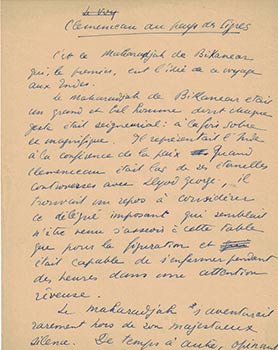 Le Vrai
Clemenceau au pays des tigres
C'est le Maharadjah de Bikanear
qui, le premier, eut l'idée de ce voyage
aux Indes.
Le maharadjah de Bikanear était
un grand et bel homme dont chaque
geste était seigneurial : à la fois sobre
et magnifique. Il représentait l'Inde
à la conférence de la paix. Quand
Clemenceau était las de ses éternelles
controverses avec Lloyd George, il
trouvait un repos à considérer
ce délégué imposant qui semblait
n'être venu s'asseoir à cette table
que pour la figuration et
était capable de s'enfermer pendant
des heures dans une attention
rêveuse.
Le maharadjah s'aventurait
rarement hors de son majestueux
silence. De temps à autre, opinant